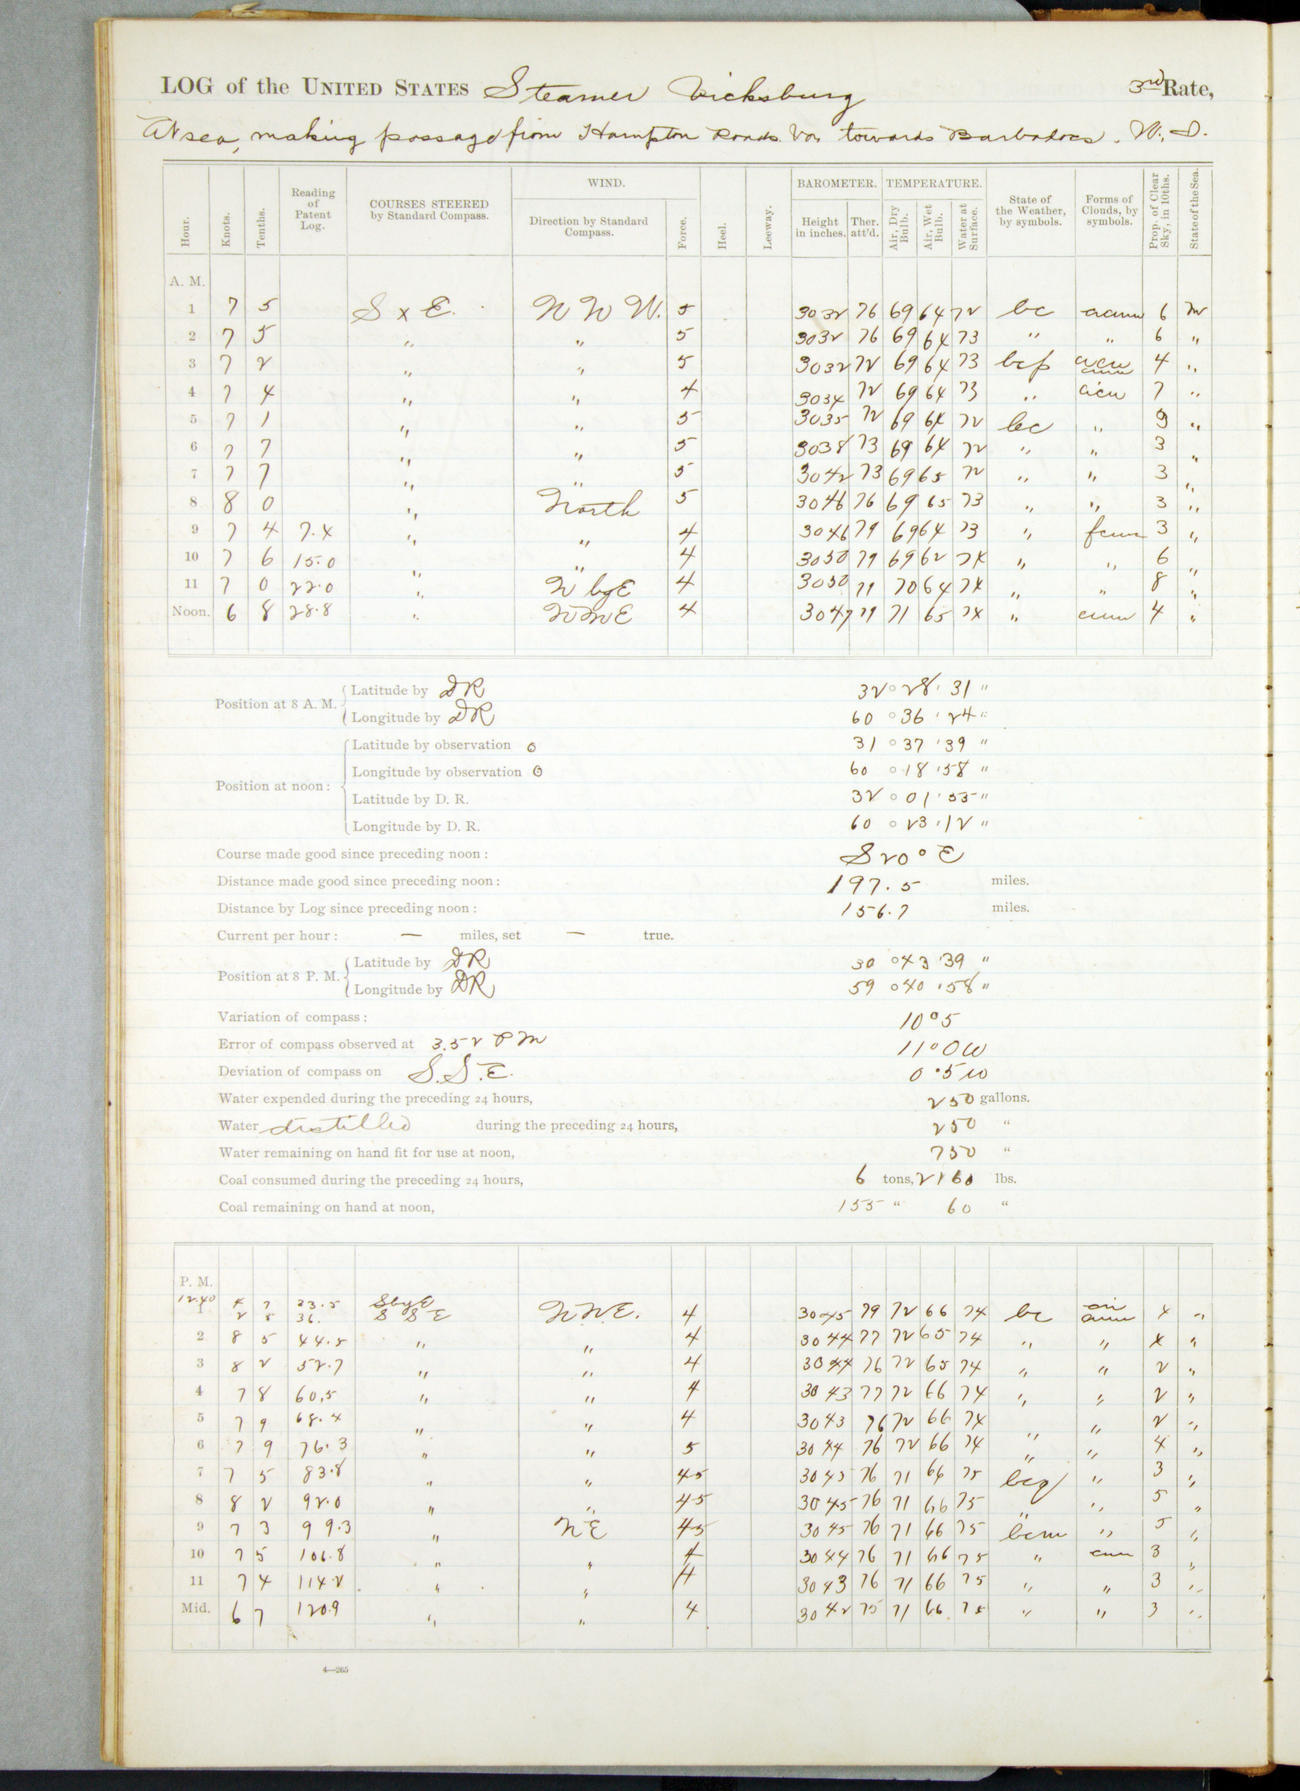 LOG of the UNITED STATES Steamer Vicksburg 3rd Rate,
At sea, making passage from Hampton Roads Va, towards Barbadoes. W. I.
Hour. Knots. Tenths. Reading of Patent Log. COURSES STEERED by Standard Compass. WIND. Direction by Standard Compass. Force. Heel. Leeway. BAROMETER. Height in inches. Ther. att'd. TEMPERATURE. Air, Dry Bulb. Air, Wet Bulb. Water at Surface. State of the Weather, by symbols. Forms of Clouds, by symbols. Prop. of Clear Sky, in 10ths. State of the Sea.
A. M.
1 7 5 S x E. N N W. 5 30 32 76 69 64 72 bc 6 M
2 7 5 " " 5 30 32 76 69 64 73 " " 6 "
3 7 2 " " 5 30 32 72 69 64 73 bcp 4 "
4 7 4 " " 4 30 34 72 69 64 73 " 7 "
5 7 1 " " 5 30 35 72 69 64 72 bc " "
6 7 7 " " 5 30 38 73 69 64 72 " " 3 "
7 7 7 " " 5 30 42 73 69 65 72 " " 3 "
8 8 0 " North 5 30 46 76 69 65 73 " " 3 "
9 7 4 7.4 " " 4 30 46 79 69 64 73 " 3 "
10 7 6 15.0 " " 4 30 50 79 69 62 74 " " 6 "
11 7 0 22.0 " N by E 4 30 50 70 64 74 " " 8 "
Noon. 6 8 28.8 " NNE 4 30 47 71 65 74 " cum 4 "
Position at 8 A. M. Latitude by DR 32 ° 28 ' 31 "
Longitude by DR 60 ° 36 ' 24 "
Position at noon: Latitude by observation 31 ° 37 ' 39 "
Longitude by observation 60 ° 18 ' 58 "
Latitude by D. R. 32 ° 01 ' 55 "
Longitude by D. R. 60 ° 23 ' 12 "
Course made good since preceding noon: S 20° E
Distance made good since preceding noon: 197.5 miles.
Distance by Log since preceding noon: 156.7 miles.
Current per hour: — miles, set — true.
Position at 8 P. M. Latitude by DR 30 ° 43 ' 39 "
Longitude by DR 59 ° 40 ' 58 "
Variation of compass: 10°5
Error of compass observed at 3.52 PM 11°0W
Deviation of compass on S.S.E. 0°5W
Water expended during the preceding 24 hours, 250 gallons.
Water distilled during the preceding 24 hours, 250 "
Water remaining on hand fit for use at noon, 750 "
Coal consumed during the preceding 24 hours, 6 tons, 2160 lbs.
Coal remaining on hand at noon, 155 " 60 "
P. M.
12.40 4 7 33.5 SbyE
1 2 5 36. S S E N.N.E. 4 30 45 79 72 66 74 bc 4 "
2 8 5 44.5 " " 4 30 44 77 72 65 74 " " 4 "
3 8 2 52.7 " " 4 30 44 76 72 65 74 " " 2 "
4 7 8 60.5 " " 4 30 43 77 72 66 74 " " 2 "
5 7 9 68.4 " " 4 30 43 76 72 66 74 " " 2 "
6 7 9 76.3 " " 5 30 44 76 72 66 74 " " 4 "
7 7 5 83.8 " " 4-5 30 45 76 71 66 75 bcq " 3 "
8 8 2 92.0 " " 4-5 30 45 76 71 66 75 " " 5 "
9 7 3 99.3 " NE 4-5 30 45 76 71 66 75 bcm " 5 "
10 7 5 106.8 " " 4 30 44 76 71 66 75 " cum 3 "
11 7 4 114.2 " " 4 30 43 76 71 66 75 " " 3 "
Mid. 6 7 120.9 " " 4 30 42 75 71 66 75 " " 3 "
4—265